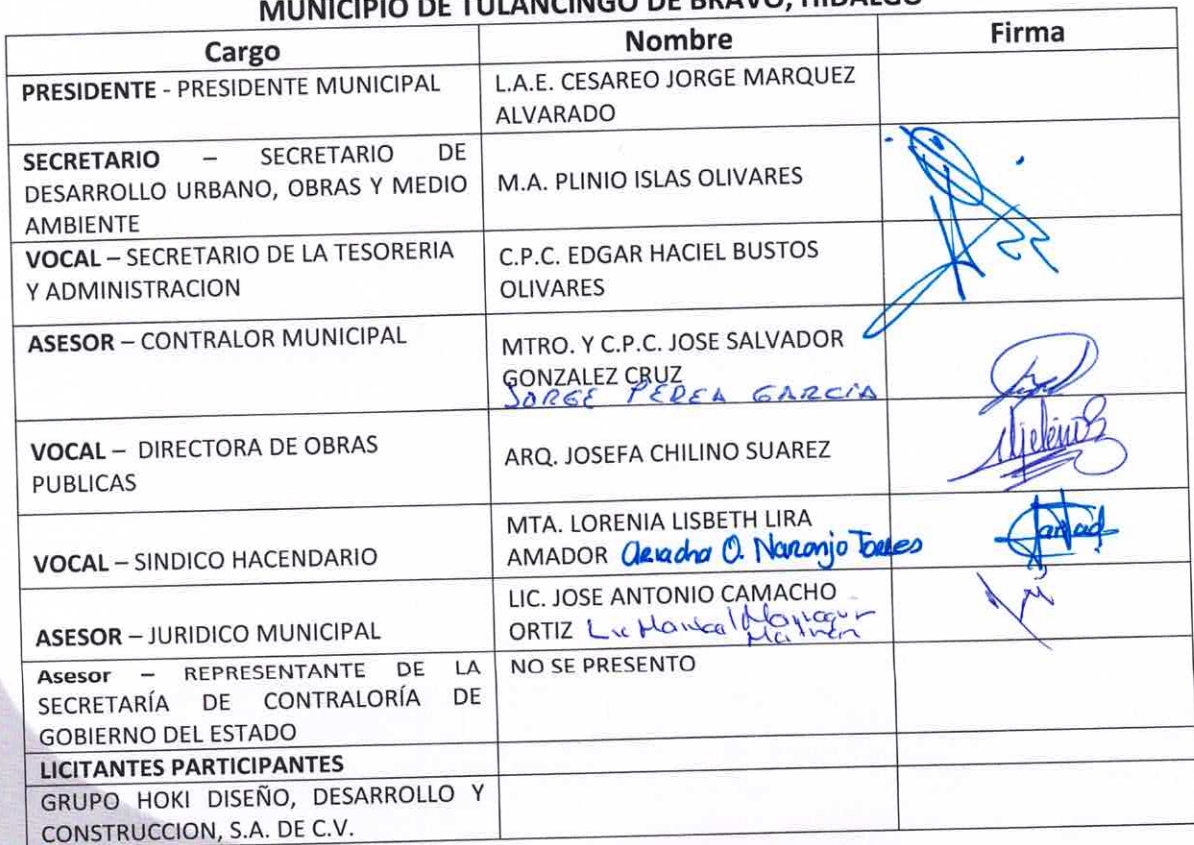 MUNICIPIO DE TULANCINGO DE BRAVO, HIDALGO
Cargo Nombre Firma
PRESIDENTE - PRESIDENTE MUNICIPAL
L.A.E. CESAREO JORGE MARQUEZ
ALVARADO
SECRETARIO – SECRETARIO DE
DESARROLLO URBANO, OBRAS Y MEDIO
AMBIENTE
M.A. PLINIO ISLAS OLIVARES
VOCAL – SECRETARIO DE LA TESORERIA
Y ADMINISTRACION
C.P.C. EDGAR HACIEL BUSTOS
OLIVARES
ASESOR – CONTRALOR MUNICIPAL
MTRO. Y C.P.C. JOSE SALVADOR
GONZALEZ CRUZ
JORGE PEREA GARCIA
VOCAL – DIRECTORA DE OBRAS
PUBLICAS
ARQ. JOSEFA CHILINO SUAREZ
VOCAL – SINDICO HACENDARIO
MTA. LORENIA LISBETH LIRA
AMADOR O. Naranjo Torres
ASESOR – JURIDICO MUNICIPAL
LIC. JOSE ANTONIO CAMACHO
ORTIZ Lic
Asesor – REPRESENTANTE DE LA
SECRETARÍA DE CONTRALORÍA DE
GOBIERNO DEL ESTADO
NO SE PRESENTO
LICITANTES PARTICIPANTES
GRUPO HOKI DISEÑO, DESARROLLO Y
CONSTRUCCION, S.A. DE C.V.